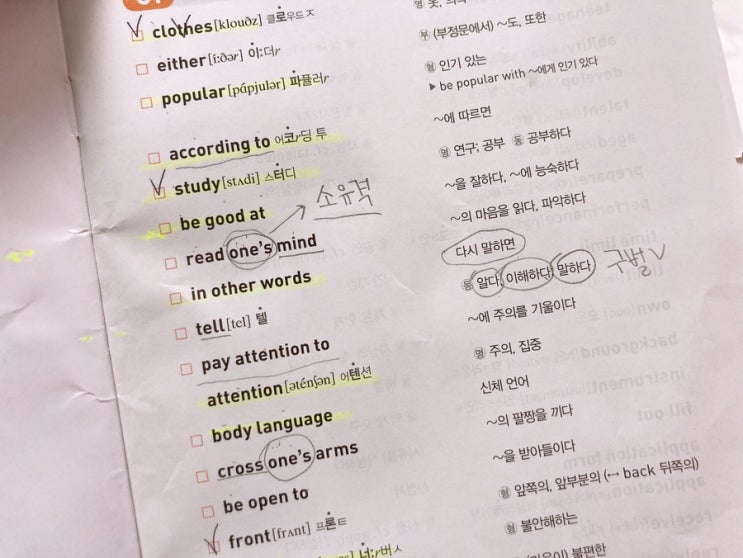 clothes[klouðz] 클로우드ㅈ
either[íːðər] 이:더r
(부정문에서) ~도, 또한
popular[pápjulər] 파퓰러r
인기 있는
▶ be popular with ~에게 인기 있다
according to 어코r딩 투
~에 따르면
study[stʌdi] 스터디
명 연구; 공부 동 공부하다
be good at
~을 잘하다, ~에 능숙하다
소유격
read one's mind
~의 마음을 읽다, 파악하다
in other words
다시 말하면
tell[tel] 텔
동 알다, 이해하다, 말하다
구별
pay attention to
~에 주의를 기울이다
attention[əténʃən] 어텐션
명 주의, 집중
body language
신체 언어
cross one's arms
~의 팔짱을 끼다
be open to
~을 받아들이다
front[frʌnt] 프론트
형 앞쪽의, 앞부분의 (↔ back 뒤쪽의)
너:r버ㅅ
형 불안해하는
불편한